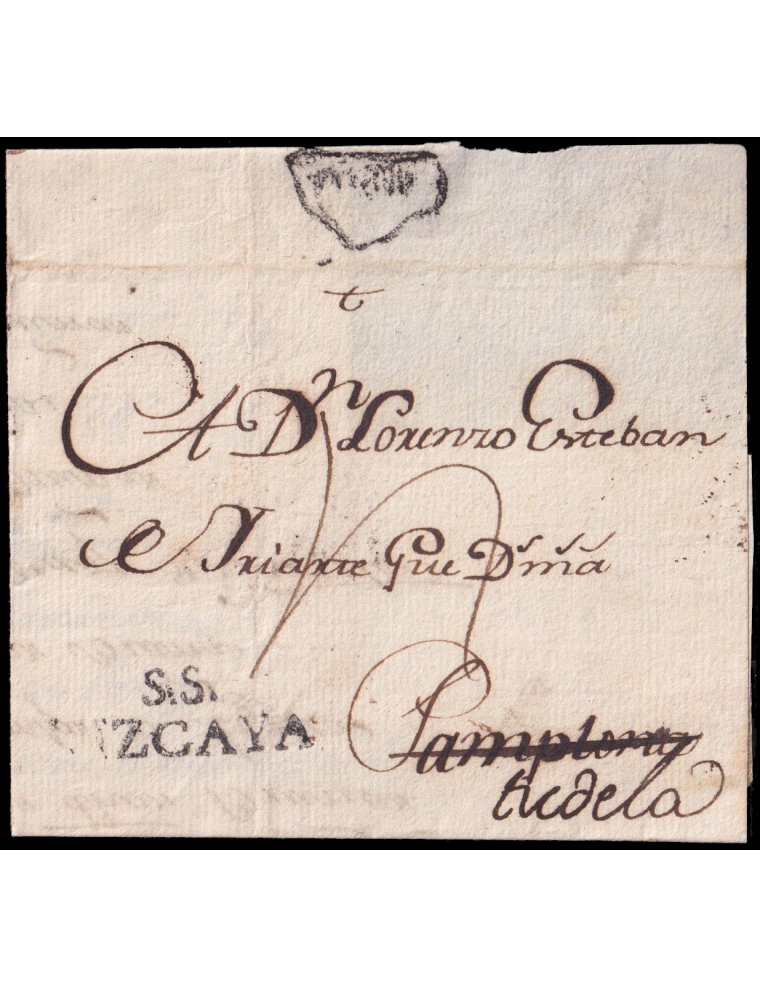 A Dn Lorenzo Esteban
Yriarte Gue Dsma
S.S.
VIZCAYA
Pamplona
tudela